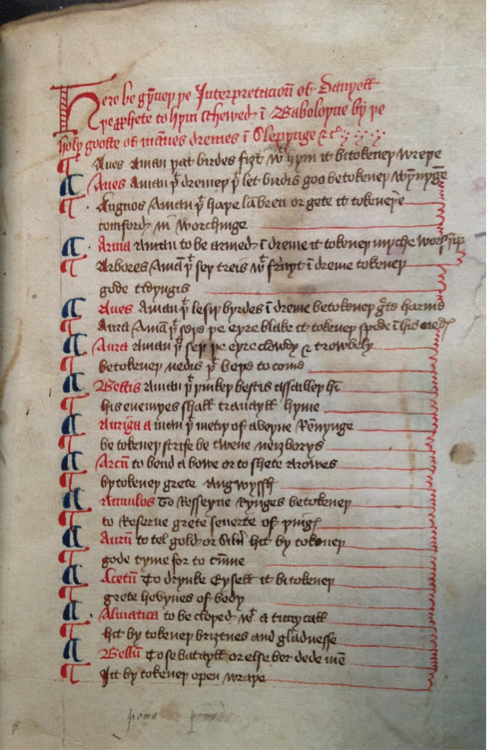 Here be gynnep þe Interpretacioun of Danyell
þe pphete to hym schewed ī Baboloyne by þe
holy gooste of mānes dremes ī Sleppynge
Aues A man þat birdes fizt wt hym it bitokeneþ wreþe
Aues A man þt dremeþ þt let birdis goo betokeneþ wynnynge
Angnos A man þt haþe lābren or gete it tokeneþe
comford in worchinge
Arma A man to be armed ī dreme it tokeneþ myche worschup
Arbores A mā þt seþ treis wt fruyt ī dreme tokeneþ
gode tydyngis
Aues A man þt lesiþ byrdes ī dreme betokeneþ harme
Aura A mā þt seys þe eyre blake it tokeneþ spede ī his
Aura A man þt seþ þe eyre clowdy & trowbely
betokeneþ nedis þt beþ to come
Bestis A man þt þinkeþ bestis assaileþ hī
his enemyes shall trauayll hyme
Auriga a man þt metiþ of
be tokeneþ strife be twene neizborys
Arcū to bend a bowe or to shete Arowes
bytokeneþ grete Angwyssh
Annulos To Resseyue Rynges betokeneþ
to Reserue grete seuerte of þingꝭ
Aurū to tel gold or hit by tokeneþ
gode tyme for to
Acetū To drynke Eysell it bitokeneþ
grete hevynes of body
Almatica to be cloþed wt a tunycall
hit by tokeneþ briztnes and gladnesse
Bellū To se batayll or else ber dede mē
Hit by tokeneþ open wraþe